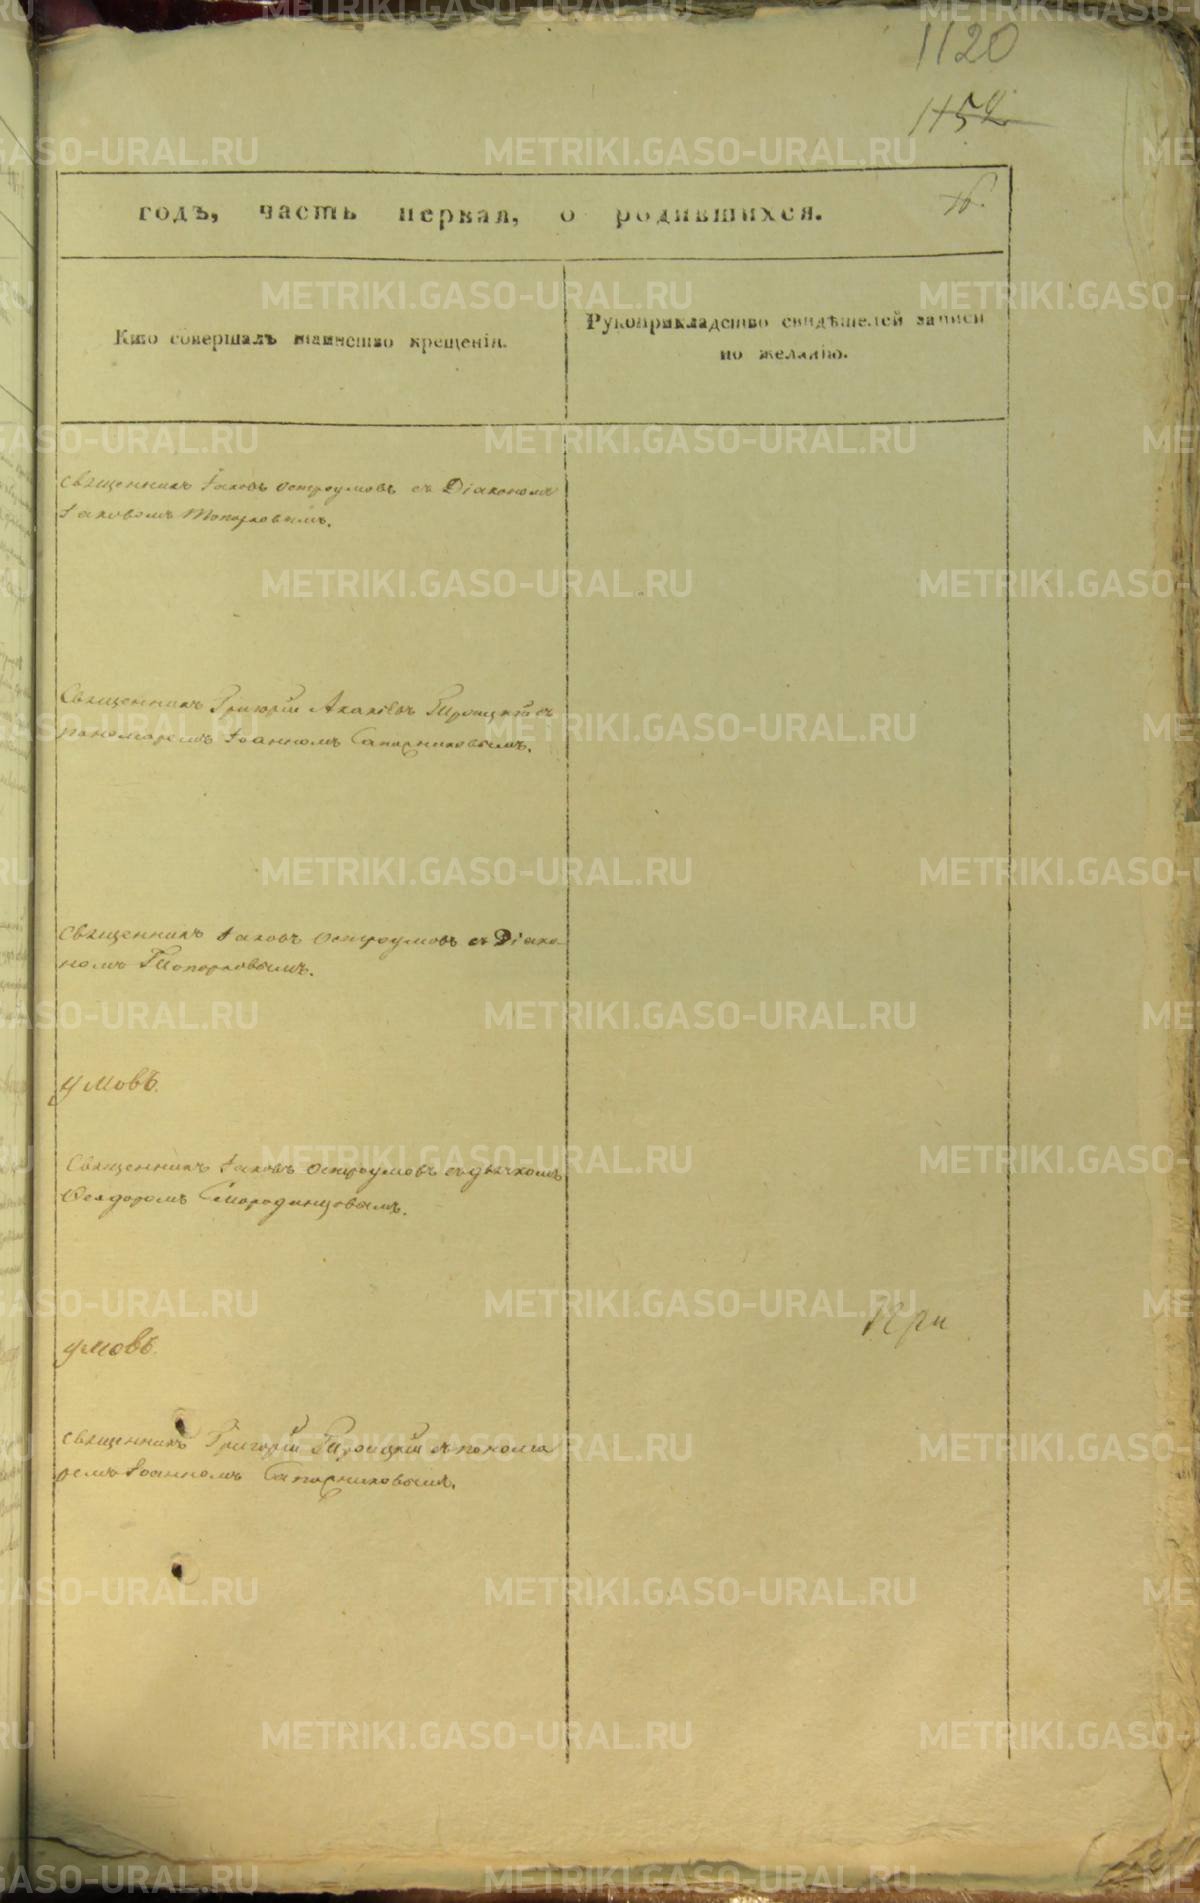 1120
1152
годъ, часть первая, о родившихся.
Кто совершалъ таинство крещенія.
Рукоприкладство свидѣтелей записи
по желанію.
священникъ Іаковъ Остроумовъ съ Діакономъ
Іаковомъ Топорковымъ.
Священникъ Григорій Троицкій съ
пономаремъ Іоанномъ Сапожниковымъ.
священникъ Іаковъ Остроумовъ съ Діако-
номъ Топорковымъ.
умовъ.
Священникъ Іаковъ Остроумовъ съ дьячкомъ
Ѳеодоромъ Смородинцовымъ.
умовъ.
священникъ Григорій Троицкій съ понома
ремъ Іоанномъ Сапожниковымъ.
METRIKI.GASO-URAL.RU